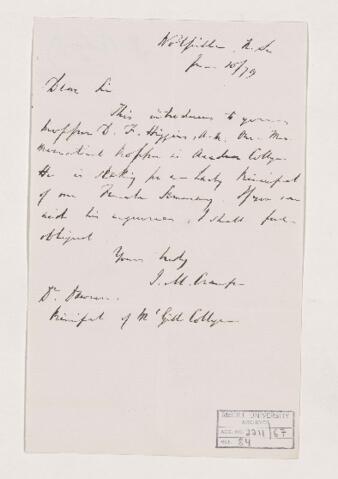 Wolfville, N. Sc
10/79
Dear Sir
This introduces to you
Professor D. F. Higgins, A.M. Our Ma
thematical Professor in Acadia College
He is seeking for a Lady Principal
of our Female Seminary. If you can
aid his inquiries, I shall feel
obliged
Yours truly
J. M. Cramp
Dr Dawson
Principal of McGill College
McGILL UNIVERSITY
ARCHIVES
ACC. NO. 2211 / 67
REF. 54